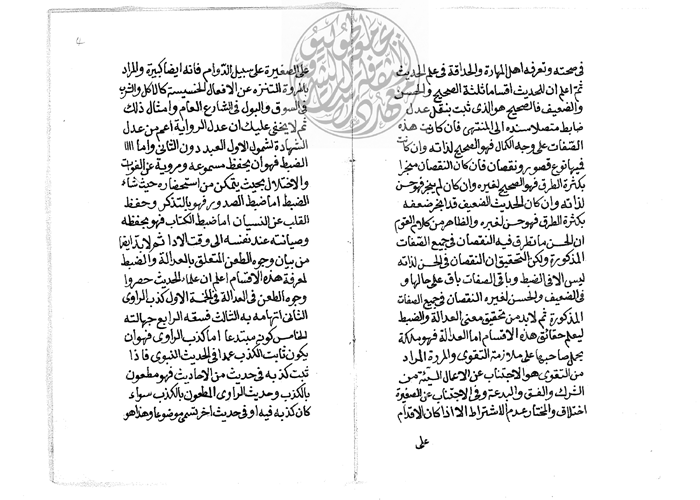 في صحته وتعرفه اهل المهارة والحذاقة في علم الحديث
ثم اعلم ان للحديث اقساما ثلثة الصحيح والحسن
والضعيف فالصحيح هو الذي ثبت بنقل عدل
ضابط متصلا سنده الى المنتهى فان كانت هذه
الصفات على وجه الكمال فهو الصحيح لذاته وان كانت
فيها نوع قصور ونقصان فان كان النقصان منجبرا
بكثرة الطرق فهو الصحيح لغيره وان كان لم ينجبر فهو حسن
لذاته وان كان الحديث الضعيف قد انجبر ضعفه
بكثرة الطرق فهو حسن لغيره والظاهر من كلام القوم
ان الحسن ما تطرق فيه النقصان في جميع الصفات
المذكورة ولكن التحقيق ان النقصان في الحسن لذاته
ليس الا في الضبط وباقي الصفات باق على حالها و
في الضعيف والحسن لغيره النقصان في جميع الصفات
المذكورة ثم لا بد من تحقيق معنى العدالة والضبط
ليعلم حقائق هذه الاقسام اما العدالة فهو ملكة
يحمل صاحبها على ملازمة التقوى والمروة المراد
من التقوى هو الاجتناب عن الاعمال السيئة من
الشرك والفسق والبدعة وفي الاجتناب عن الصغيرة
اختلاف والمختار عدم الاشتراط الا اذا كان الاقدام
على
على الصغيرة على سبيل الدوام فانه ايضا كبيرة والمراد
بالمروة التنزه عن الافعال الخسيسة كالاكل والشرب
في السوق والبول في الشارع العام وامثال ذلك
ثم لا يخفى عليك ان عدل الرواية اعم من عدل
الشهادة لشمول الاول العبد دون الثاني واما
الضبط فهو ان يحفظ مسموعه ومروية عن الفوات
والاختلال بحيث يتمكن من استحضاره حيث شاء
الضبط اما ضبط الصدور فهو بالتذكر وحفظ
القلب عن النسيان اما ضبط الكتاب فهو بحفظه
وصيانته عند نفسه الى وقت الاداء ثم لا بد ايضا
من بيان وجوه الطعن المتعلق بالعدالة والضبط
لمعرفة هذه الاقسام اعلم ان علماء الحديث حصروا
وجوه الطعن في العدالة في الخمسة الاول كذب الراوي
الثاني اتهامه به الثالث فسقه الرابع جهالته
الخامس كونه مبتدعا اما كذب الراوي فهو ان
يكون ثابت الكذب عمدا في الحديث النبوي فاذا
ثبت كذبه في حديث من الاحاديث فهو مطعون
بالكذب وحديث الراوي المطعون بالكذب سواء
كان كذبه فيه او في حديث اخر تسمى موضوعا وهذا هو